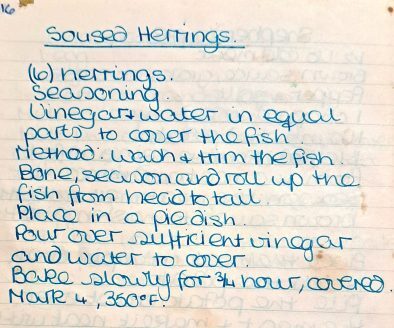 16
Soused Herrings.
(6) herrings.
Seasoning.
Vinegar & water in equal
parts to cover the fish
Method: wash & trim the fish.
Bone, season and roll up the
fish from head to tail.
Place in a pie dish.
Pour over sufficient vinegar
and water to cover.
Bake slowly for 3/4 hour, covered.
Mark 4, 360°F.